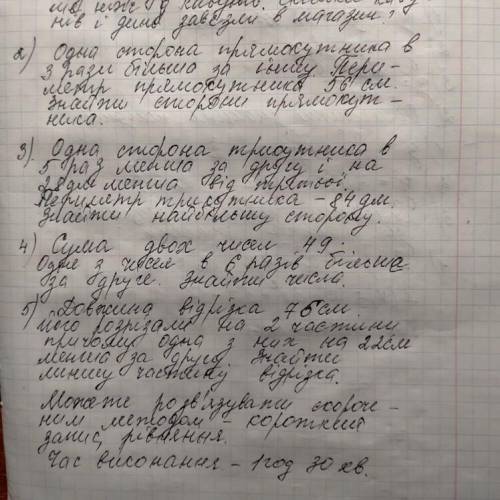 нів і динь завезли в магазин?
2) Одна сторона прямокутника в
3 рази більша за іншу. Пери-
метр прямокутника 56 см.
Знайти сторони прямокут-
ника.
3) Одна сторона трикутника в
5 раз менша за другу і на
28дм менша від третьої.
Периметр трикутника - 84 дм.
Знайти найбільшу сторону.
4) Сума двох чисел 49.
Одне з чисел в 6 разів більше
за друге. Знайти числа.
5) Довжина відрізка 75см.
Його розрізали на 2 частини
причому одна з них на 22см
менша за другу. Знайти
меншу частину відрізка.
Можете розв'язувати скороче-
ним методом - короткий
запис, рівняння.
Час виконання - 1 год 30 хв.